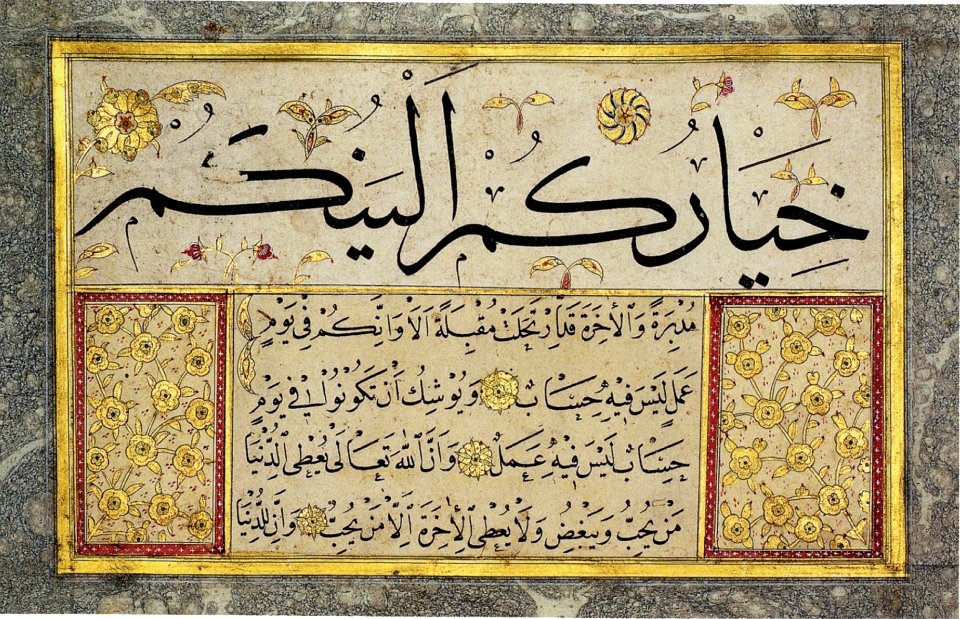 خِيَارُكُمْ اَلْيَنُكُمْ
مُدْبِرَةً وَالْأٰخِرَةَ قَدِ ارْتَحَلَتْ مُقْبِلَةً اَلَا وَاِنَّكُمْ فِي يَوْمِ
عَمَلٍ لَيْسَ فِيهِ حِسَابٌ وَيُوشِكُ اَنْ تَكُونُوا فِي يَوْمِ
حِسَابٍ لَيْسَ فِيهِ عَمَلٌ وَاِنَّ اللّٰهَ تَعَالٰى يُعْطِي الدُّنْيَا
مَنْ يُحِبُّ وَيَبْغَضُ وَلَا يُعْطِي الْأٰخِرَةَ اِلَّا مَنْ يُحِبُّ وَاِنَّ لِلدُّنْيَا